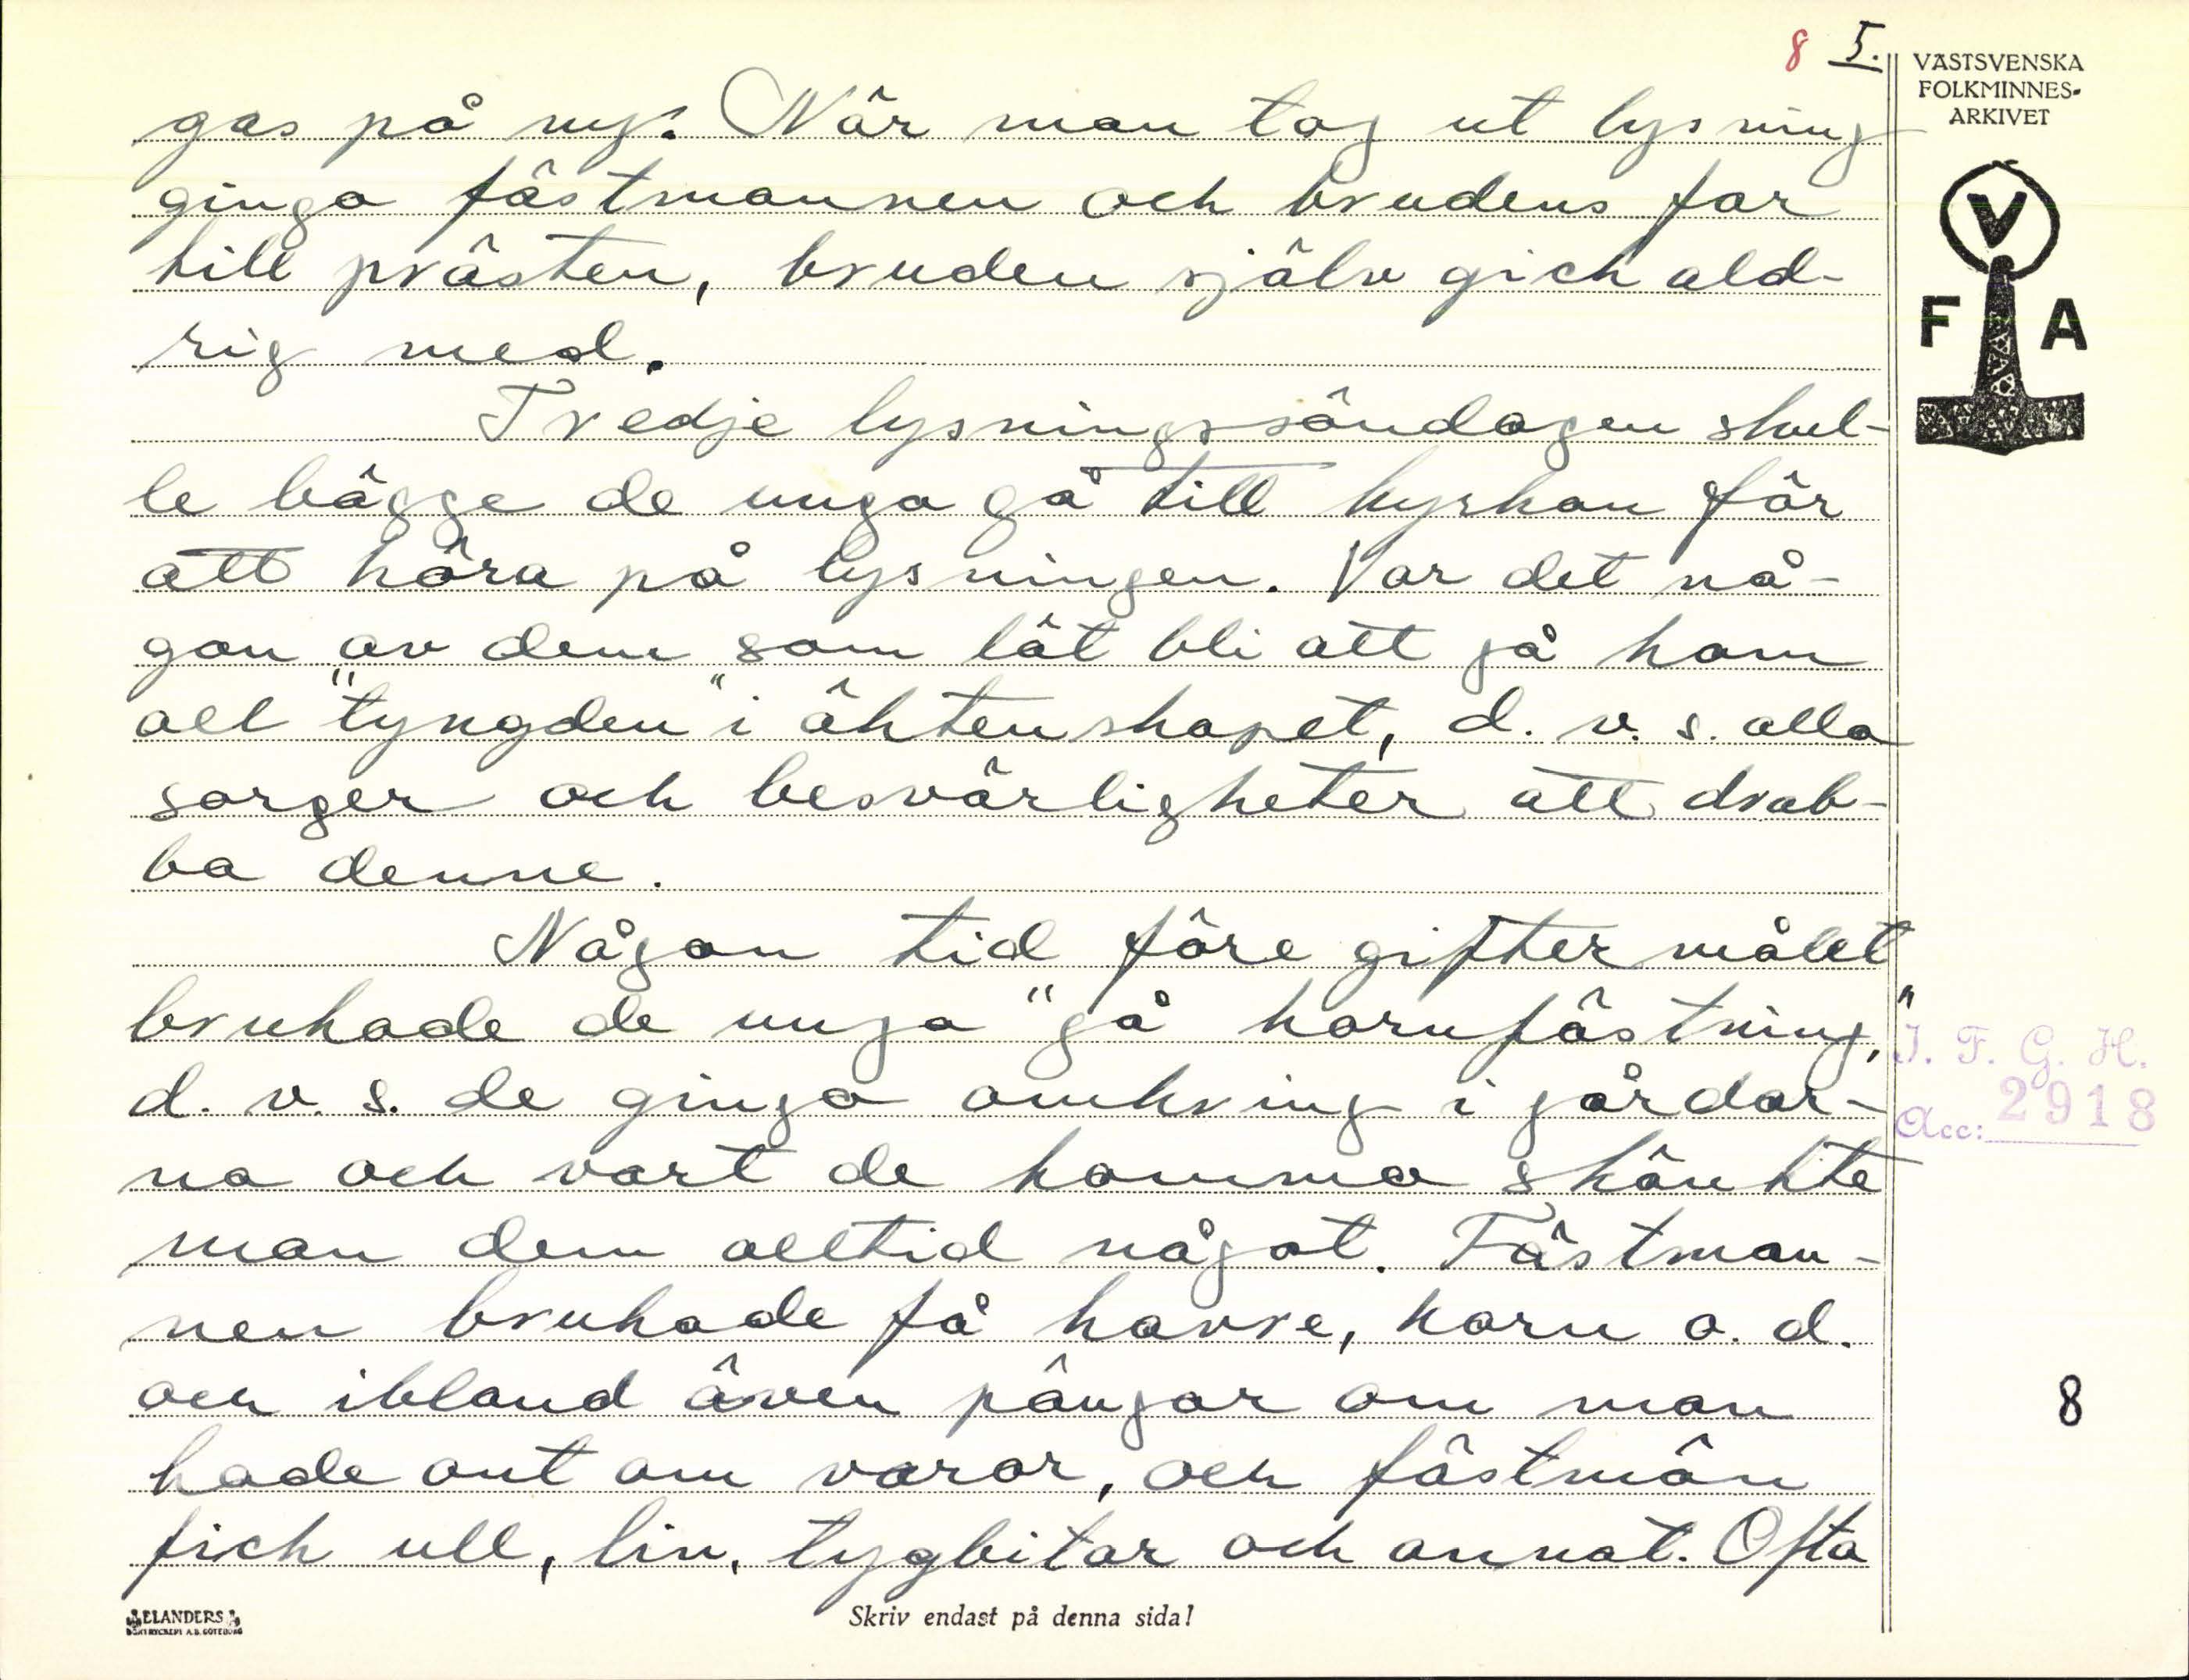 8 5.
VÄSTSVENSKA
FOLKMINNES-
ARKIVET
V
F A
gas på ny. När man tog ut lysning
gingo fästmannen och brudens far
till prästen, bruden själv gick ald-
rig med.
Tredje lysningssöndagen skul-
le bägge de unga gå till kyrkan för
att höra på lysningen. Var det nå-
gon av dem som lät bli att gå kom
all "tyngden" i äktenskapet, d. v. s. alla
sorger och besvärligheter att drab-
ba denne.
Någon tid före giftermålet
brukade de unga "gå kornfästning,"
d. v. s. de gingo omkring i gårdar-
na och vart de kommo skänkte
man dem alltid något. Fästman-
nen brukade få havre, korn o. d.
och ibland även pängar om man
hade ont om varor, och fästmön
fick ull, lin, tygbitar och annat. Ofta
I. F. G. H.
Acc: 2918
8
ELANDERS
BOKTRYCKERI A.B. GÖTEBORG
Skriv endast på denna sida!